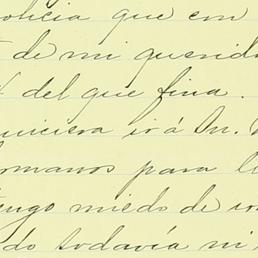 noticia que con
de mi querido
del que fina.
quiciera ir á Dn.
hermanos para
tengo miedo de
do todavía ni